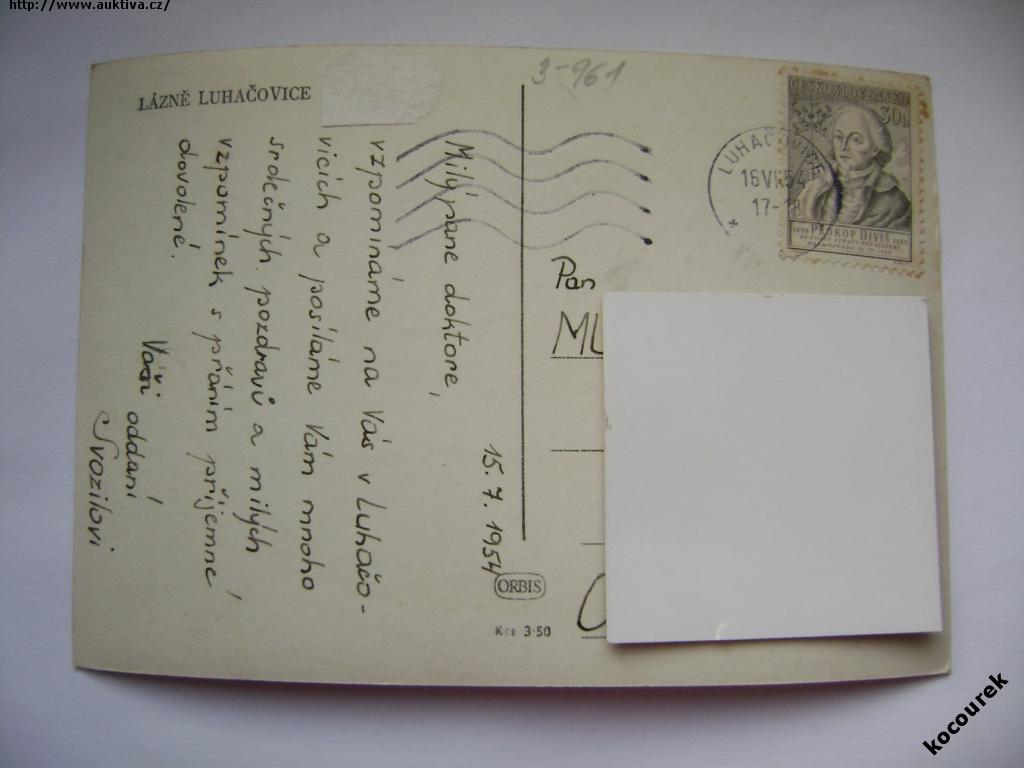 http://www.auktiva.cz/
LÁZNĚ LUHAČOVICE
3-961
ČESKOSLOVENSKO
30h
PROKOP DIVIŠ
LUHAČOVICE
16 VII 54
17-18
15. 7. 1954
Milý pane doktore,
vzpomínáme na Vás v Luhačo-
vicích a posíláme Vám mnoho
srdečných pozdravů a milých
vzpomínek s přáním příjemné
dovolené.
Vaši oddaní
Svozilovi
Pan
ML
ORBIS
Kčs 3·50
kocourek